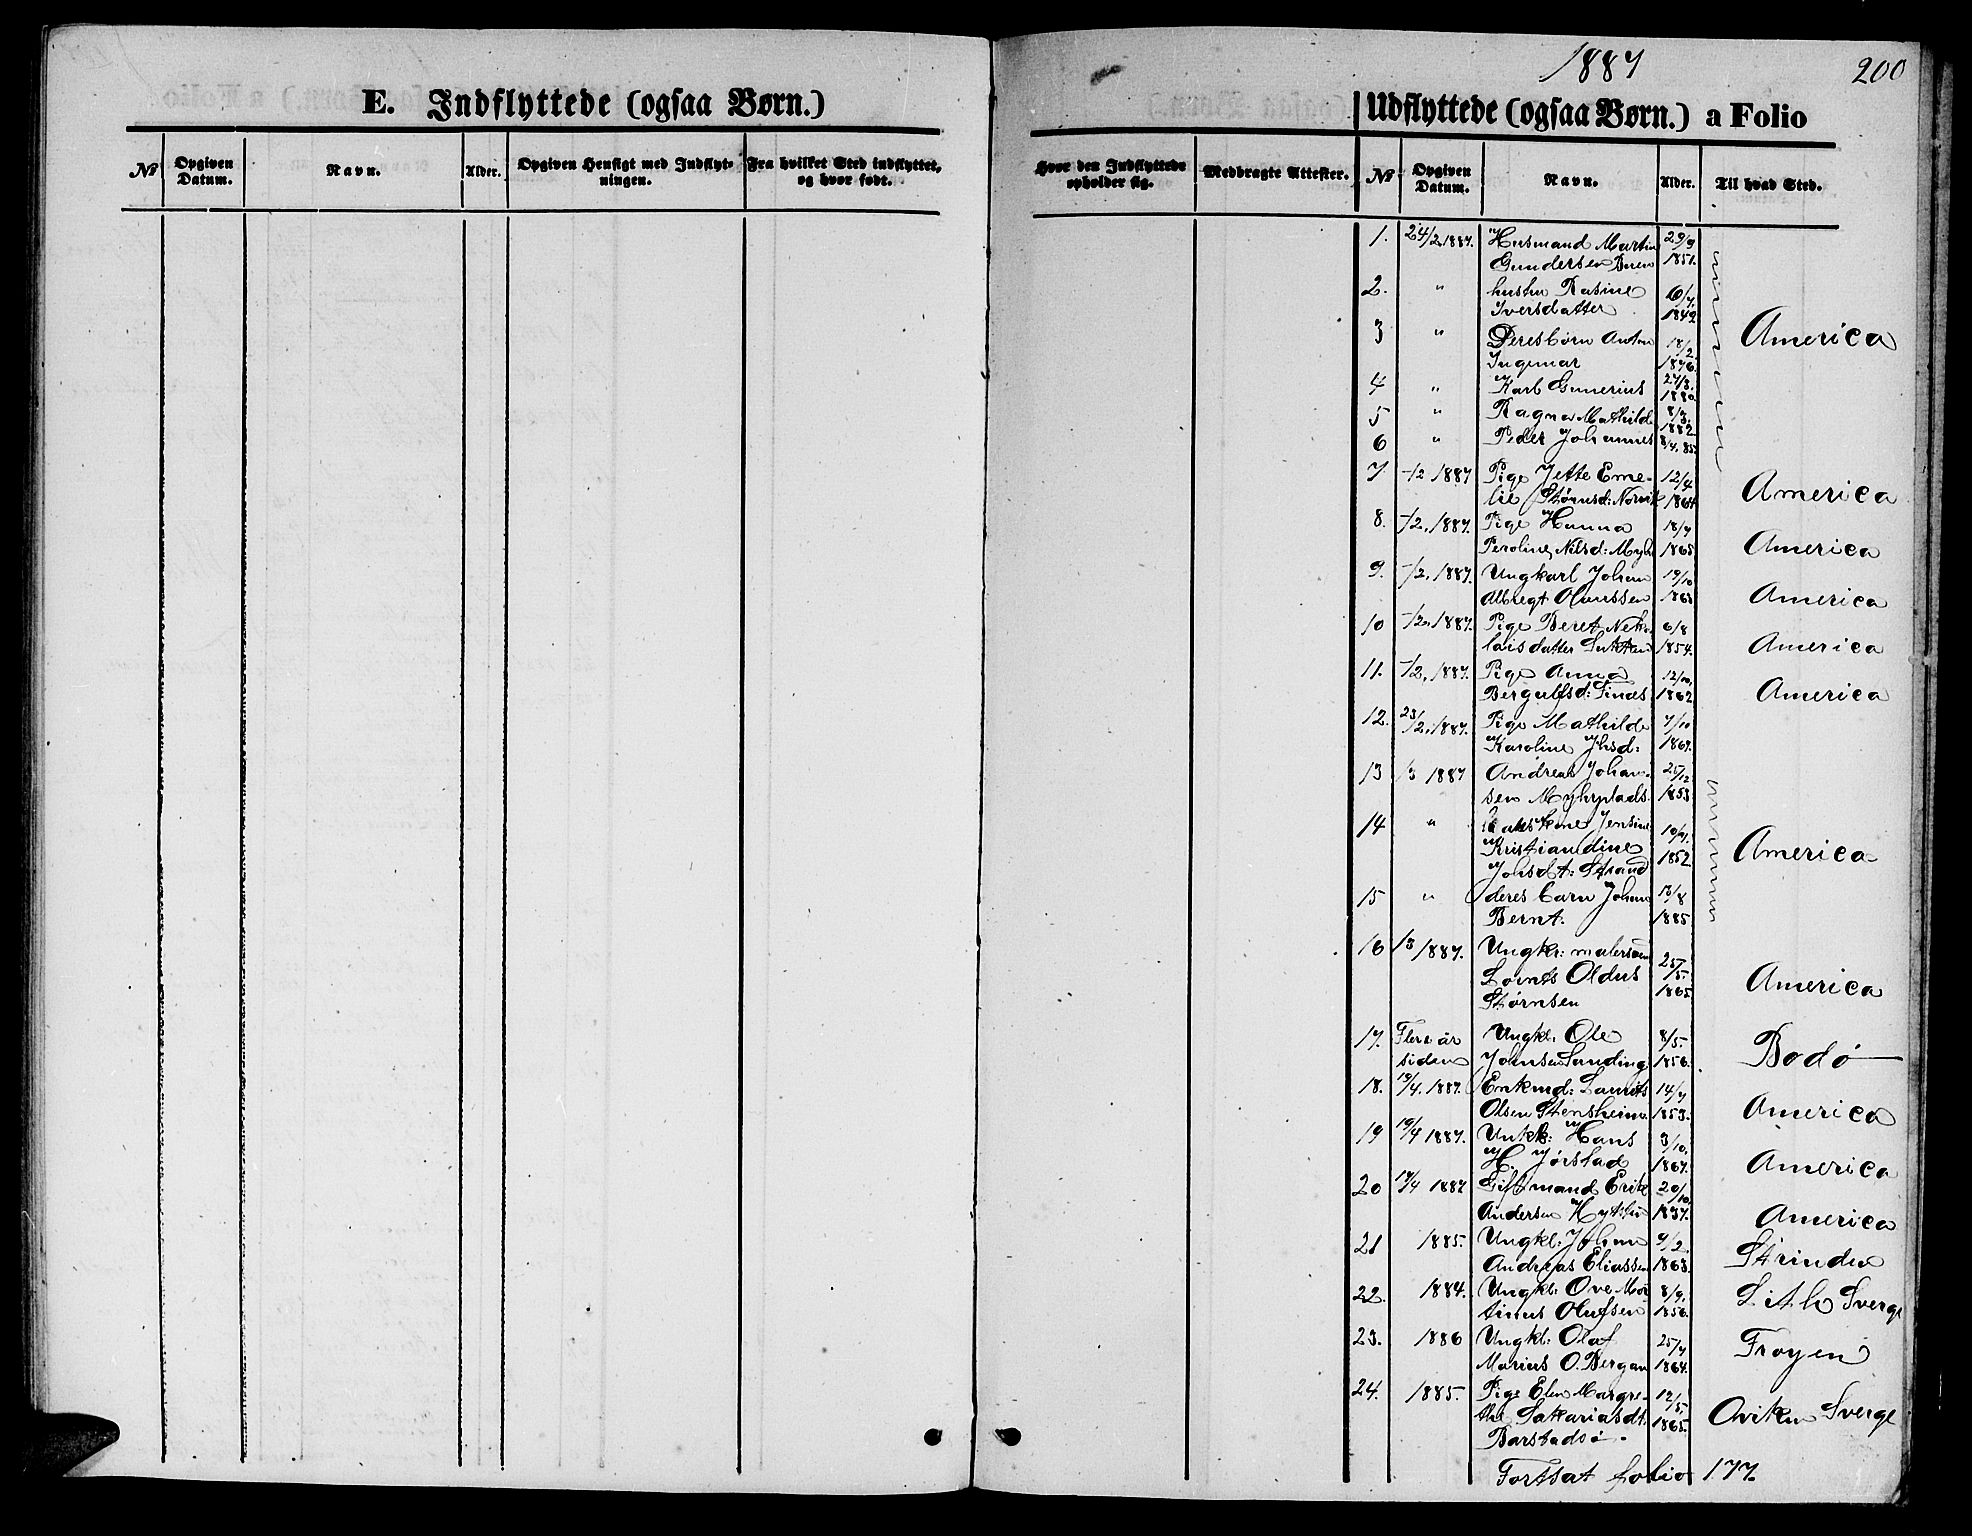 1887
200
E. Indflyttede (ogsaa Børn.)
No Opgiven Datum. Navn. Alder. Opgiven Hensigt med Indflytningen. Fra hvilket Sted indflyttet, og hvor født.
Udflyttede (ogsaa Børn.) a Folio
Hvor den Indflyttede opholder sig. Medbragte Attester. No Opgiven Datum. Navn. Alder. Til hvad Sted.
1. 24/2 1887. Husmand Martin 29/9
Gundersen 1851.
2. " hustru Rasine 6/7
Iversdatter 1842
3 " Deres børn Anton 18/2 America
Ingemar 1876.
4 " Karl Gunerius 27/8. 1880
5 " Ragna Mathild 8/3. 1882
6 " Peder Johannes 8/4. 85.
7 -/2 1887 Pige Jette Eme- 12/4
lie Størnsd: 1864 America
8. -/2, 1887. Pige Hanna 18/7
Peroline, Nilsd: 1865 America
9. -/2, 1887. Ungkarl Johan 19/10
Albregt Olaussen 1863 America
10 -/2, 1887. Pige Beret Nek- 6/8
laisdatter 1854. America
11. -/2, 1887. Pige Anna 12/10,
Bergulfsd: 1862 America
12. 23/2, 1887. Pige Mathilde 7/10
Karoline Jhsd: 1867.
13 /3 1887 Andreas Johan- 25/12
sen Myhrplads. 1853
14 " Jensine 10/7.
Kristiandine 1852 America
Johsdt: Strand
15 " deres barn Johan 13/8
Bernt. 1885
16 /3 1887. Ungkr: malersven 25/5.
Lornts Oldus 1865 America
Størnsen
17. Flere år Ungkl: Ole 8/5.
siden Johnsen Sunding 1856. Bodø
18. 19/4. 1887. Enkmd: Laurits 14/7
Olsen Stensheim. 1853. America
19 19/4 1887. Untkk: Hans 3/10.
H. Jørstad 1867. America
20 19/4 1887 Giftmand Erik 20/10
Andersen 1837. America
21 1885. Ungkl: Johan 9/2
Andreas Eliassen 1863. Strinden
22. 1884. Ungkl: Ove Mor- 8/9.
tinus Olufsen 1856. Lith Sverge
23. 1886 Ungkl: Olaf 25/7
Marius O. Bergan 1864. Frøyen
24. 1885. Pige Elen Margre- 12/5.
the Sakariasdt. 1865. Oviken Sverge
Barstadsø.
Fortsat folio 177